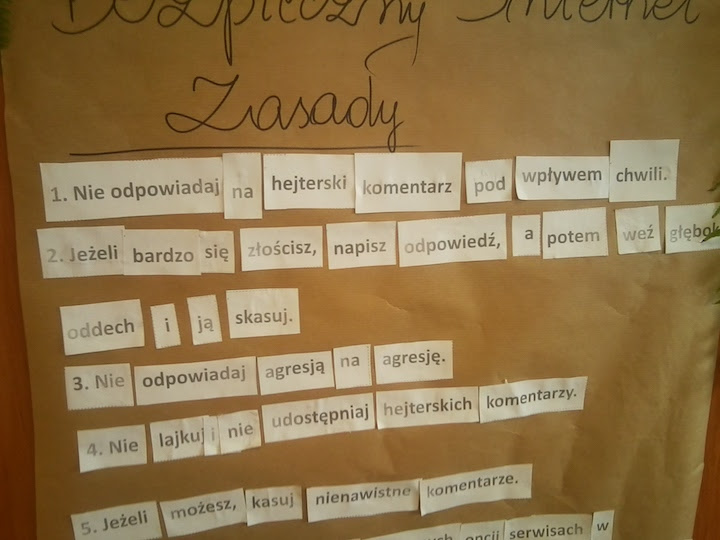 Bezpieczny Internet
Zasady
1. Nie odpowiadaj na hejterski komentarz pod wpływem chwili.
2. Jeżeli bardzo się złościsz, napisz odpowiedź, a potem weź
oddech i ją skasuj.
3. Nie odpowiadaj agresją na agresję.
4. Nie lajkuj i nie udostępniaj hejterskich komentarzy.
5. Jeżeli możesz, kasuj nienawistne komentarze.
opcji serwisach w